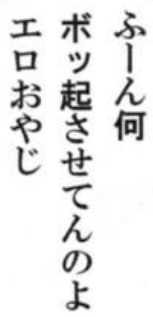 ふーん何
ボッ起させてんのよ
エロおやじ